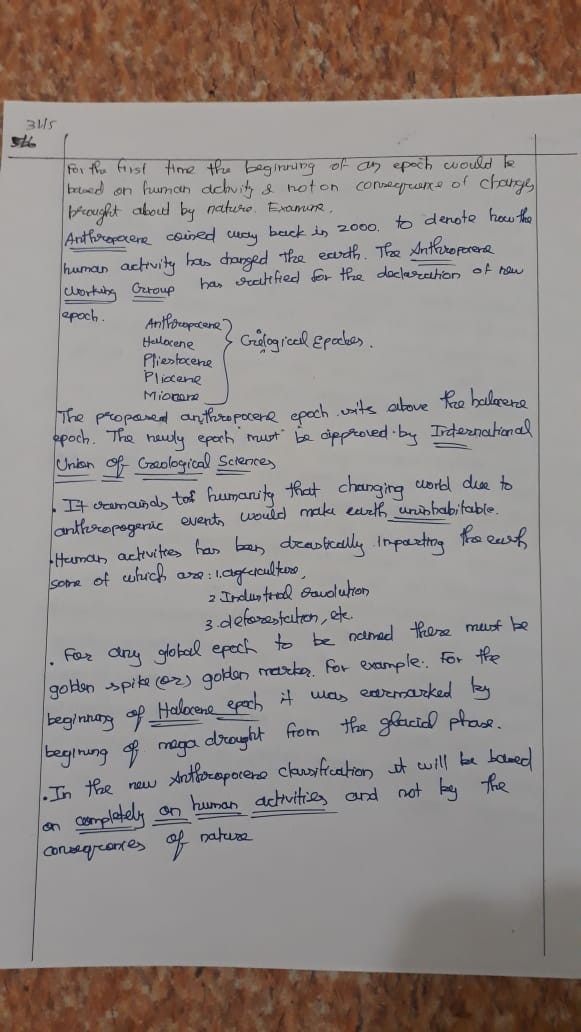 31/5
For the first time the beginning of an epoch would be
based on human activity & not on consequence of changes
brought about by nature. Examine.
Anthropocene coined way back in 2000. to denote how the
human activity has changed the earth. The Anthropocene
Working Group has ratified for the declaration of new
epoch.
Anthropocene
Holocene
Pliestocene
Pliocene
Miocene
Geological Epoches.
The proposed anthropocene epoch sits above the holocene
epoch. The newly epoch must be approved by International
Union of Geological Sciences
. It remainds to humanity that changing world due to
anthropogenic events would make earth uninhabitable.
. Human activities has been drastically impacting the earth
some of which are: 1. agriculture,
2 Industrial Revolution
3. deforestation, etc.
. For any global epoch to be named there must be
golden spike (or) golden marker. For example:. For the
beginning of Holocene epoch it was earmarked by
begining of mega drought from the glacial phase.
. In the new Anthropocene classification it will be based
on completely on human activities and not by the
consequences of nature